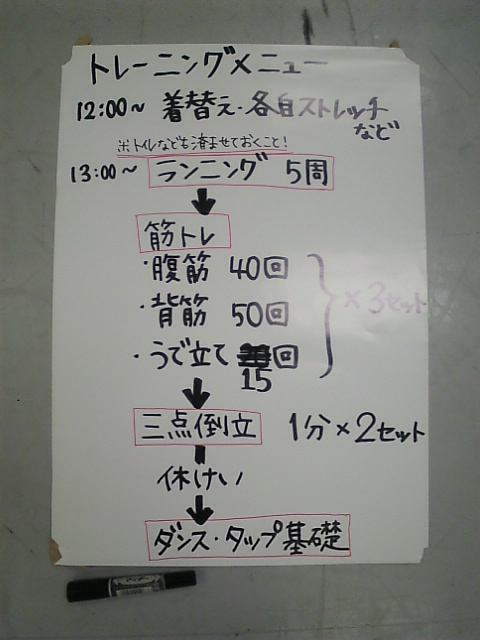 トレーニングメニュー
12:00~ 着替え・各自ストレッチ
など
※トイレなども済ませておくこと!
13:00~ ランニング 5周
筋トレ
・腹筋 40回
・背筋 50回
×3セット
・うで立て 回
15
三点倒立 1分×2セット
休けい
ダンス・タップ基礎